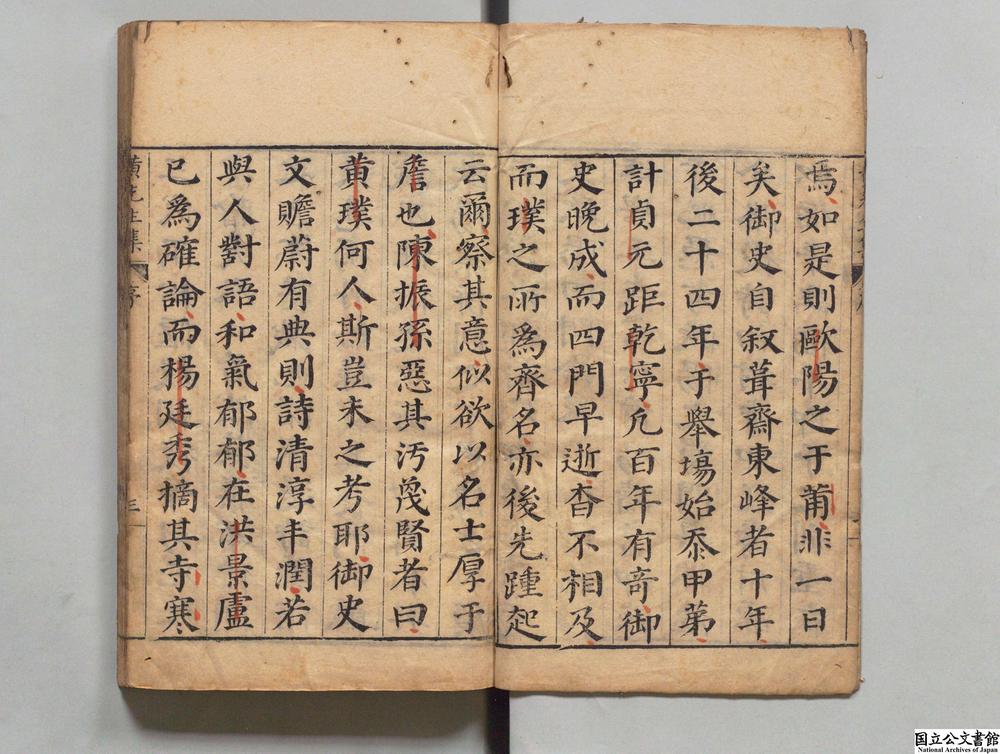 焉如是則歐陽之于莆非一日
矣御史自叙葺齋東峰者十年
後二十四年于舉塲始忝甲第
計貞元距乾寧凢百年有奇御
史晚成而四門早逝杳不相及
而璞之所為齊名亦後先踵起
云爾察其意似欲以名士厚于
詹也陳振孫惡其汚衊賢者曰
黄璞何人斯豈未之考耶御史
文贍蔚有典則詩清淳丰潤若
與人對語和氣郁郁在洪景盧
已爲確論而楊廷秀摘其寺寒
黄先生集
序
三
国立公文書館
National Archives of Japan